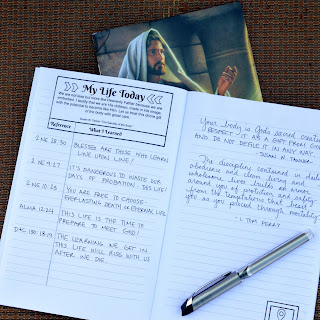 My Life Today
We are nothing but more like Heavenly Father because we are
embodied. I testify that we are His children, made in His image,
with the potential to become like Him. Let us treat this divine gift
of the body with great care.
Reference
What I Learned
2 NE 28:30
BLESSED ARE THOSE WHO LEARN
LINE UPON LINE!
2 NE 9:27
IT'S DANGEROUS TO WASTE OUR
DAYS OF PROBATION. THIS LIFE!
2 NE 10:23
YOU ARE FREE TO CHOOSE -
EVERLASTING DEATH OR ETERNAL LIFE
ALMA 12:24
THIS LIFE IS THE TIME TO
PREPARE TO MEET GOD!
D+C 130:18-19
THE LEARNING WE GET IN
THIS LIFE WILL RISE WITH US
AFTER WE DIE.
Your body is God's sacred creation.
RESPECT IT AS A GIFT FROM GOD
AND DO NOT DEFILE IT IN ANY WAY.
- SUSAN W. TANNER
The discipline contained in daily
obedience and clean living and
wholesome lives builds an armor
around you of protection and safety
from the temptations that beset
you as you proceed through mortality.
L. TOM PERRY